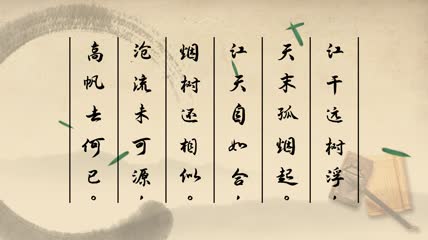 江干远树浮，
天末孤烟起。
江天自如合，
烟树还相似。
沧流未可源，
高帆去何已。